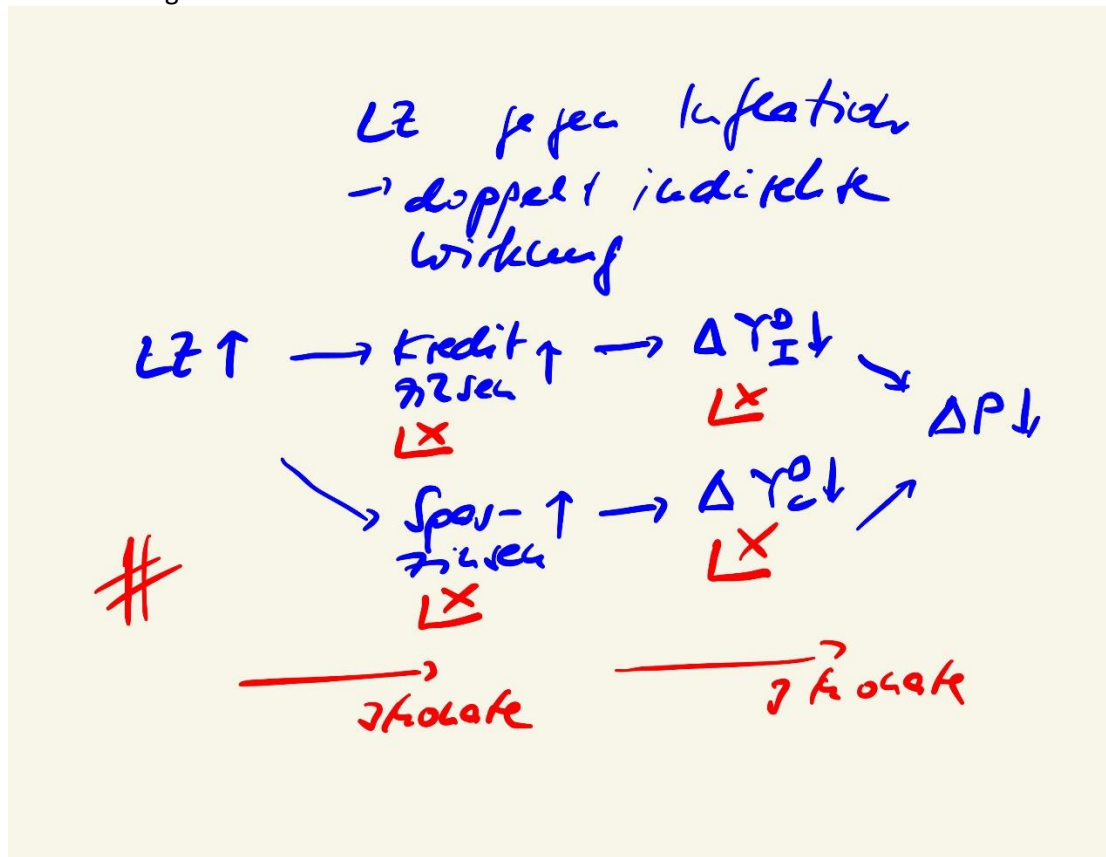 LZ gegen Inflation
→ doppelt indirekte
Wirkung
LZ ↑ → Kredit ↑ → Δ Y^D_I ↓
zinsen
Δ P ↓
Spar- ↑ → Δ Y^D_C ↓
zinsen
Monate
Monate